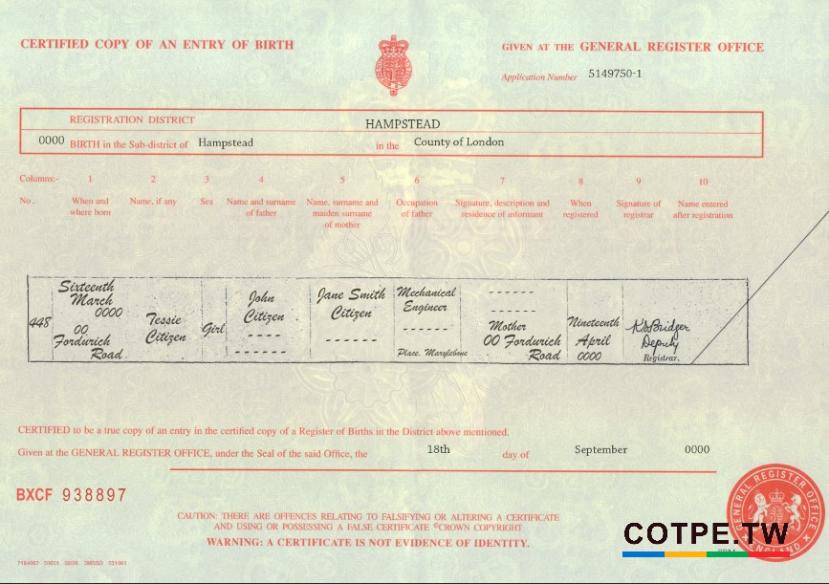 CERTIFIED COPY OF AN ENTRY OF BIRTH
GIVEN AT THE GENERAL REGISTER OFFICE
Application Number 5149750-1
REGISTRATION DISTRICT HAMPSTEAD
0000 BIRTH in the Sub-district of Hampstead in the County of London
Columns:- 1 2 3 4 5 6 7 8 9 10
No. When and where born Name, if any Sex Name and surname of father Name, surname and maiden surname of mother Occupation of father Signature, description and residence of informant When registered Signature of registrar Name entered after registration
448
Sixteenth
March
0000
00
Fordwich
Road
Tessie
Citizen
Girl
John
Citizen
----
------
Jane Smith
Citizen
------
Mechanical
Engineer
------
Place. Marylebone
------
------
Mother
00 Fordwich
Road
Nineteenth
April
0000
Deputy
Registrar.
CERTIFIED to be a true copy of an entry in the certified copy of a Register of Births in the District above mentioned.
Given at the GENERAL REGISTER OFFICE, under the Seal of the said Office, the 18th day of September 0000
BXCF 938897
CAUTION: THERE ARE OFFENCES RELATING TO FALSIFYING OR ALTERING A CERTIFICATE
AND USING OR POSSESSING A FALSE CERTIFICATE ©CROWN COPYRIGHT
WARNING: A CERTIFICATE IS NOT EVIDENCE OF IDENTITY.
GENERAL REGISTER OFFICE
ENGLAND
COTPE.TW